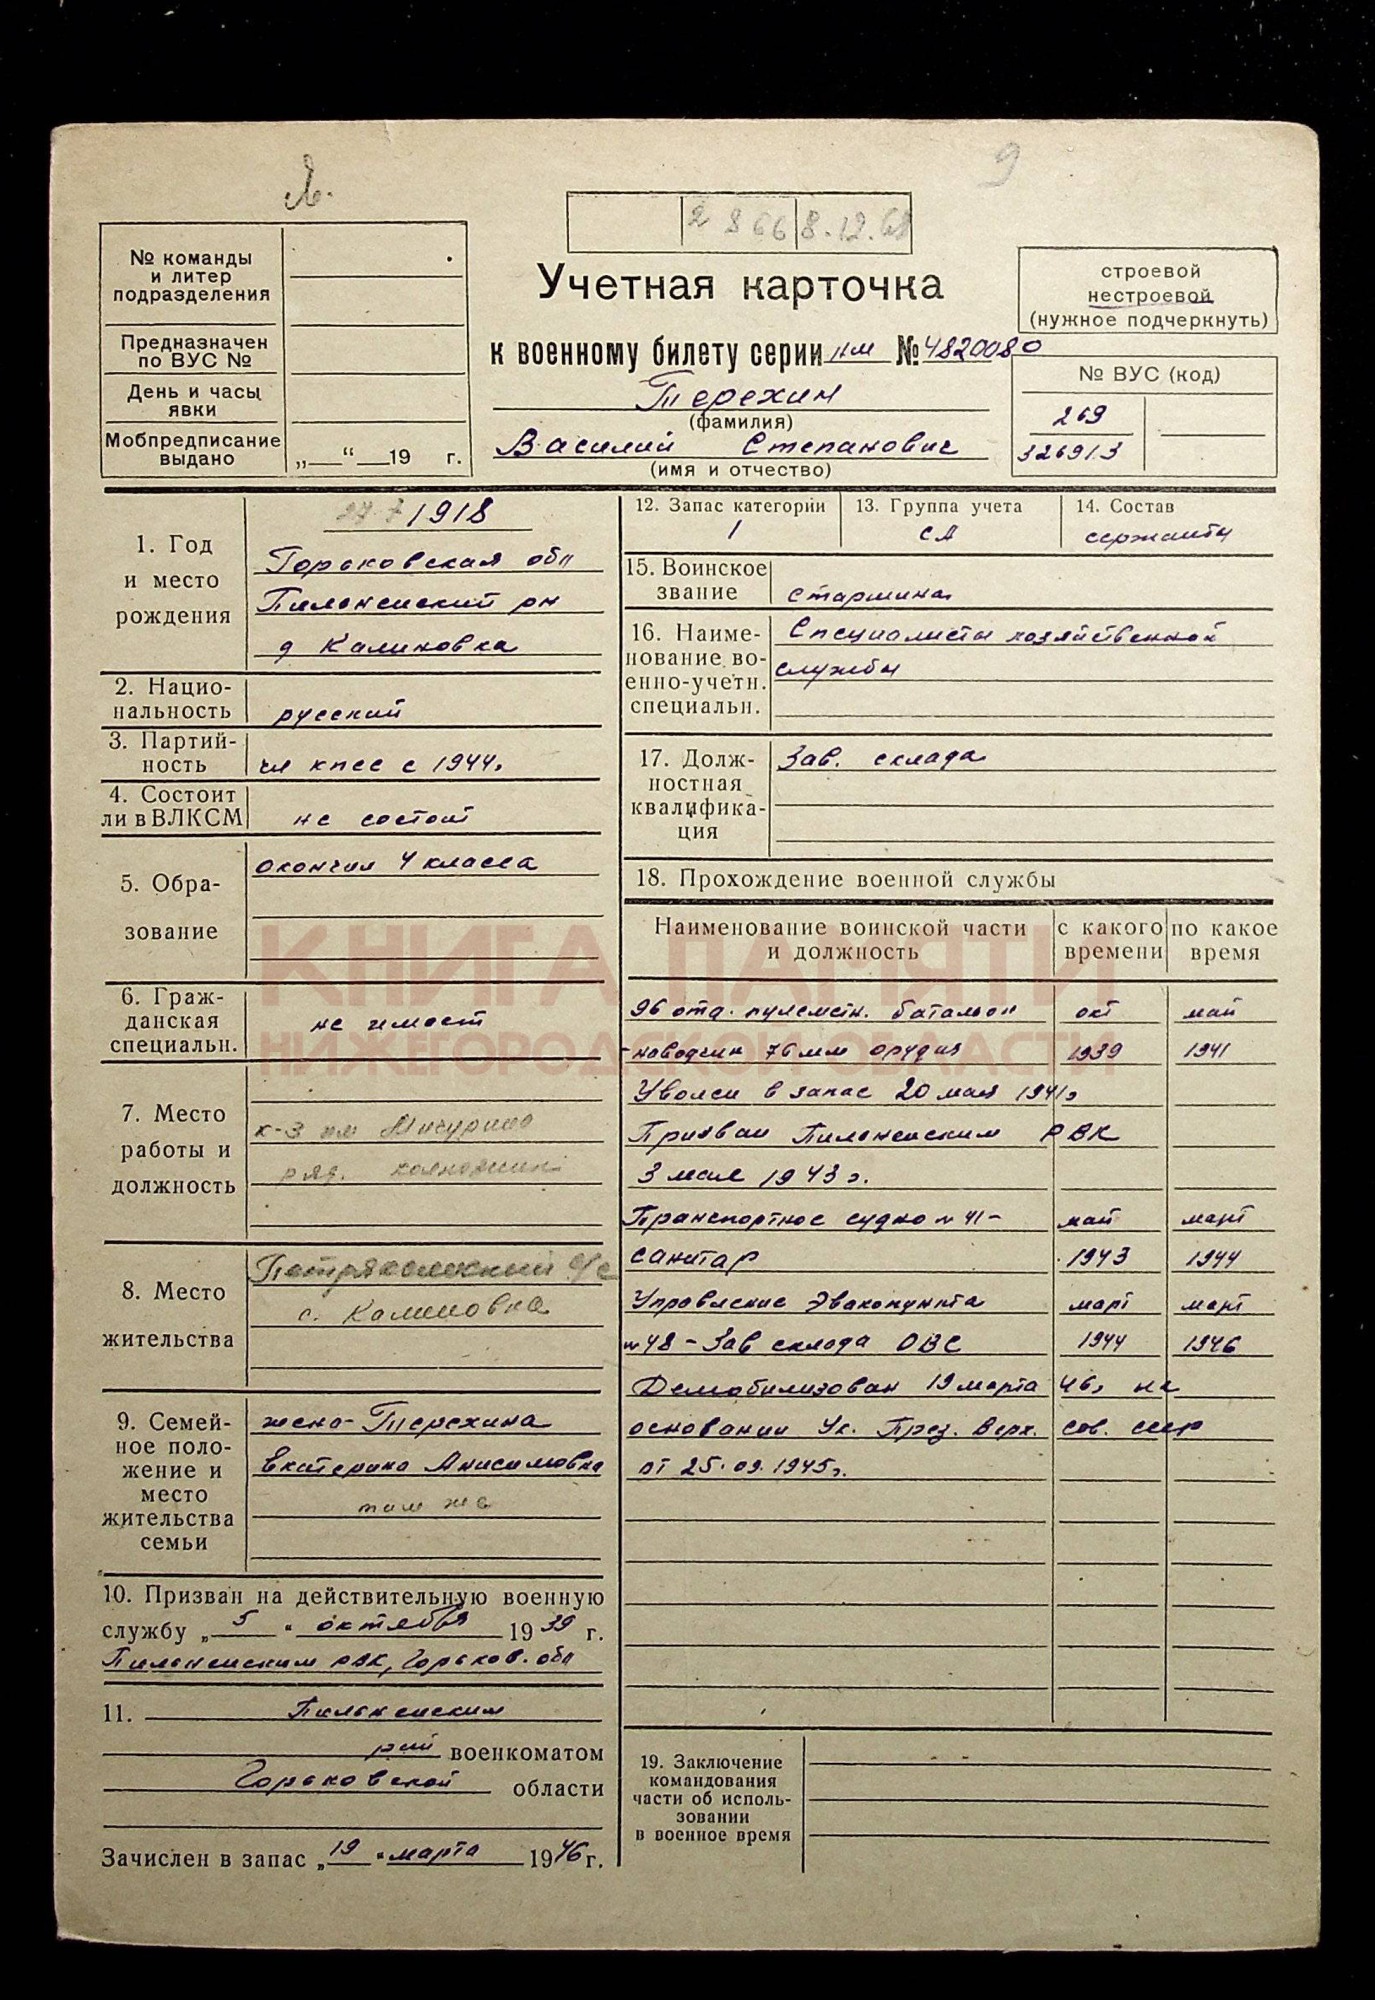 9
2 866 8.12.68
№ команды
и литер
подразделения
Предназначен
по ВУС №
День и часы
явки
Мобпредписание
выдано
„ “ 19 г.
Учетная карточка
к военному билету серии нм № 4820080
Терехин
(фамилия)
Василий Степанович
(имя и отчество)
строевой
нестроевой
(нужное подчеркнуть)
№ ВУС (код)
269
326913
1. Год
и место
рождения
27.7 1918
Горьковская обл
Пильненский рн
д Калиновка
2. Нацио-
нальность
русский
3. Партий-
ность
чл кпсс с 1944г
4. Состоит
ли в ВЛКСМ
не состоит
5. Обра-
зование
окончил 4 класса
6. Граж-
данская
специальн.
не имеет
7. Место
работы и
должность
к-з им Мичурина
ряд. колхозник
8. Место
жительства
Петряксинский с/с
с. Калиновка
9. Семей-
ное поло-
жение и
место
жительства
семьи
жена-Терехина
Екатерина Анисимовна
там же
10. Призван на действительную военную
службу „ 5 “ октября 1939 г.
Пильненским РВК, Горьков. обл
11. Пильненским
рай военкоматом
Горьковской области
Зачислен в запас „ 19 “ марта 1946 г.
12. Запас категории
1
13. Группа учета
СА
14. Состав
сержанты
15. Воинское
звание
старшина
16. Наиме-
нование во-
енно-учетн.
специальн.
Специалисты хозяйственной
службы
17. Долж-
ностная
квалифика-
ция
Зав. склада
18. Прохождение военной службы
Наименование воинской части
и должность
с какого
времени
по какое
время
96 отд. пулеметн. батальон окт май
-наводчик 76 мм орудия 1939 1941
Уволен в запас 20 мая 1941г
Призван Пильненским РВК
3 мая 1943 г.
Транспортное судно № 41- май март
санитар 1943 1944
Управление Эвакопункта март март
№48-Зав склада ОВС 1944 1946
Демобилизован 19 марта 46г на
основании Ук. През. Верх. Сов. СССР
от 25.09.1945г.
19. Заключение
командования
части об исполь-
зовании
в военное время
КНИГА ПАМЯТИ
НИЖЕГОРОДСКОЙ ОБЛАСТИ